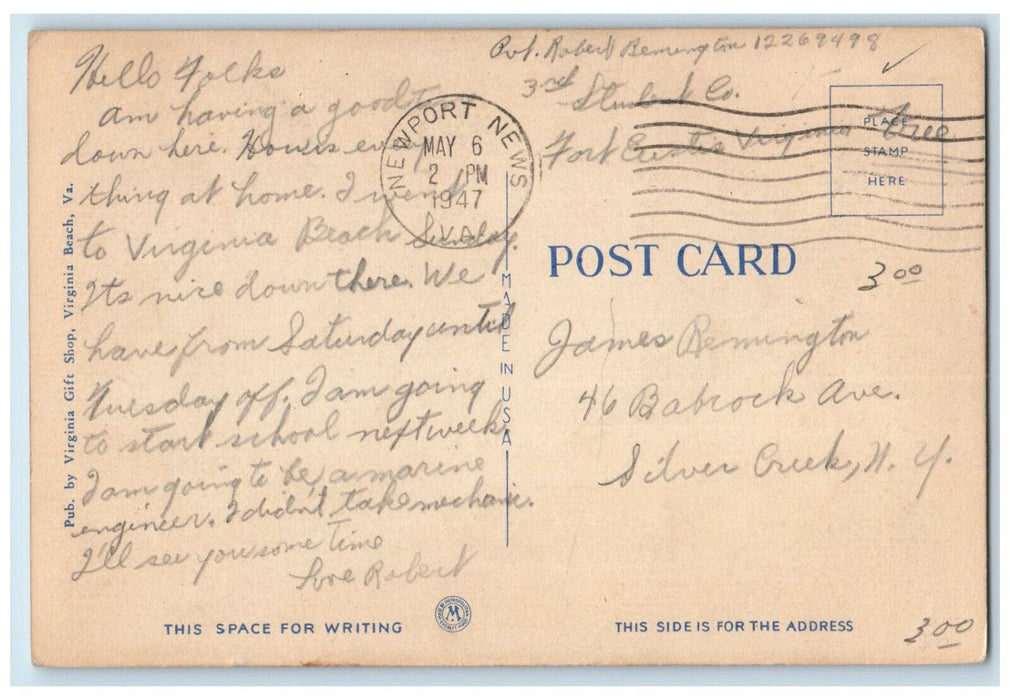 Hello Folks
Am having a good
down here. Hows every
thing at home. I went
to Virginia Beach Sunday.
Its nice down there. We
have from Saturday until
Tuesday off. I am going
to start school next week.
I am going to be a marine
engineer. I didn't take mechanic.
I'll see you some time
Love Robert
Pub. by Virginia Gift Shop, Virginia Beach, Va.
THIS SPACE FOR WRITING
MADE IN USA
NEWPORT NEWS
MAY 6
2 PM
1947
VA.
Pvt. Robert Remington 12269498
3rd Student Co.
Fort Eustis Virginia
Free
PLACE
STAMP
HERE
POST CARD
3 00
James Remington
46 Babcock Ave.
Silver Creek, N. Y.
THIS SIDE IS FOR THE ADDRESS
3 00